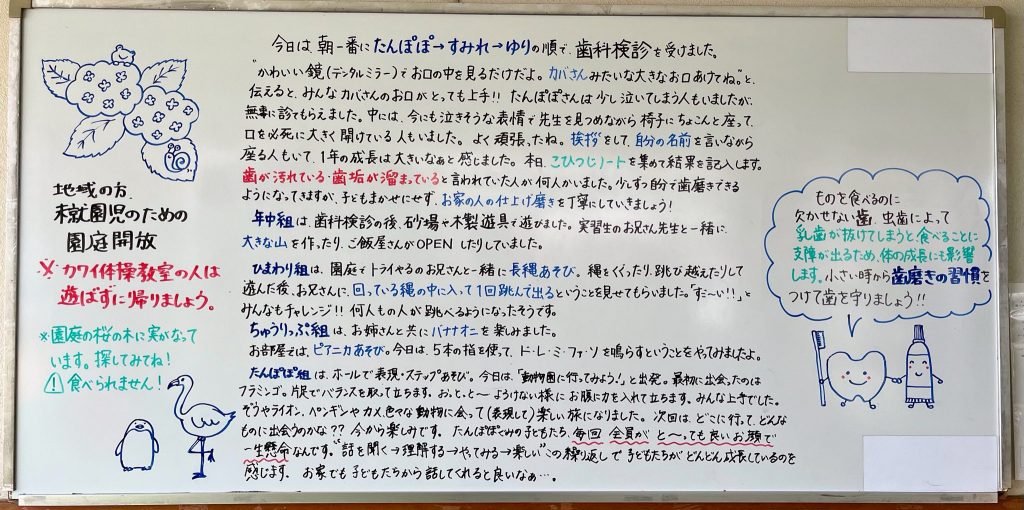 今日は、朝一番にたんぽぽ→すみれ→ゆりの順で、歯科検診を受けました。
"かわいい鏡(デンタルミラー)でお口の中を見るだけだよ。カバさんみたいな大きなお口あけてね。"と、
伝えると、みんなカバさんのお口がとっても上手!! たんぽぽさんは少し泣いてしまう人もいましたが、
無事に診てもらえました。中には、今にも泣きそうな表情で先生を見つめながら椅子にちょこんと座って、
口を必死に大きく開けている人もいました。よく頑張ったね。挨拶をして、自分の名前を言いながら
座る人もいて、1年の成長は大きいなぁと感じました。本日、こひつじノートを集めて結果を記入します。
歯が汚れている・歯垢が溜まっていると言われていた人が何人かいました。少しずつ自分で歯磨きできる
ようになってきますが、子どもまかせにせず、お家の人の仕上げ磨きを丁寧にしていきましょう!
年中組は、歯科検診の後、砂場や木製遊具で遊びました。実習生のお兄さん先生と一緒に
大きな山を作ったり、ご飯屋さんがOPENしたりしていました。
ひまわり組は、園庭でトライやるのお兄さんと一緒に長縄あそび。縄をくぐったり、跳び越えたりして
遊んだ後、お兄さんに、回っている縄の中に入って1回跳んで出るということを見せてもらいました。「すご〜い!!」と
みんなもチャレンジ!! 何人もの人が跳べるようになったそうです。
ちゅうりっぷ組は、お姉さんと共にバナナオニを楽しみました。
お部屋では、ピアニカあそび。今日は、5本の指を使って、ド・レ・ミ・ファ・ソを鳴らすということをやってみましたよ。
たんぽぽ組は、ホールで表現・ステップあそび。今日は、「動物園に行ってみよう!」と出発。最初に出会ったのは
フラミンゴ。片足でバランスを取って立ちます。おっとっと〜よろけない様にお腹に力を入れて立ちます。みんな上手でした。
ぞうやライオン、ペンギンやカメ、色々な動物に会って(表現して)楽しい旅になりました。次回は、どこに行って、どんな
ものに出会うのかな?? 今から楽しみです。たんぽぽぐみの子どもたち、毎回全員がと〜っても良いお顔で
一生懸命なんです。"話を聞く→理解する→やってみる→楽しい"この繰り返しで子どもたちがどんどん成長しているのを
感じます。お家でも子どもたちから話してくれると良いなぁ…。
地域の方、
未就園児のための
園庭開放
※カワイ体操教室の人は
遊ばずに帰りましょう。
※園庭の桜の木に実がなって
います。探してみてね!
!食べられません!
ものを食べるのに
欠かせない歯、虫歯によって
乳歯が抜けてしまうと、食べることに
支障が出るため、体の成長にも影響
します。小さい時から歯磨きの習慣を
つけて歯を守りましょう!!